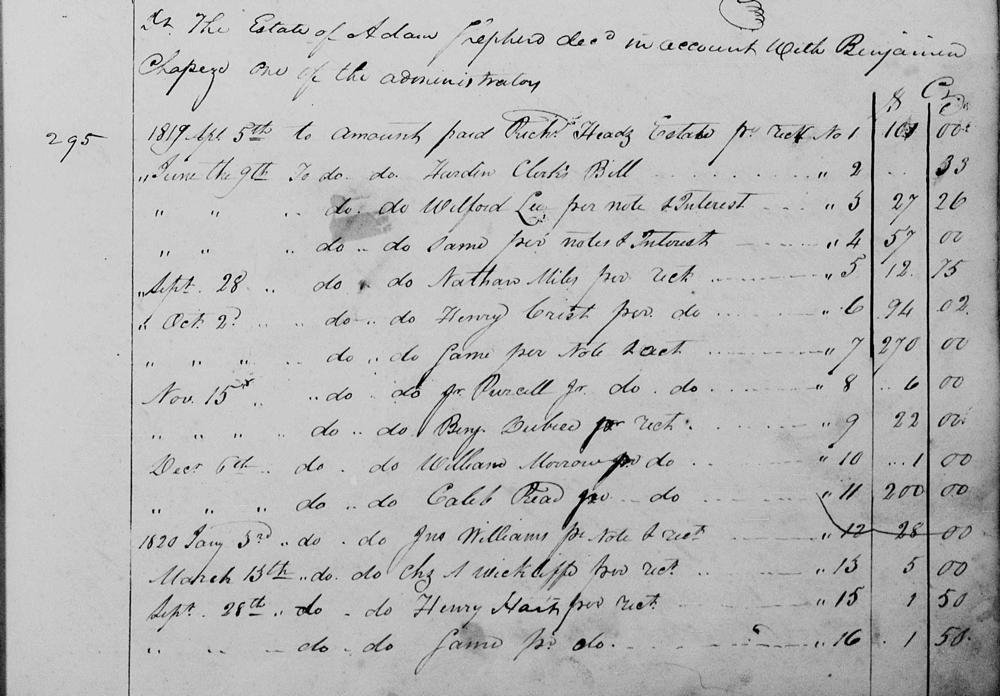 Dr. The Estate of Adam Shepherd decd in account With Benjamin
Chapeze one of the administrators
$ Cts
295 1819 Apl 5th to amount paid Richd Headz Estate pr rect No 1 00
" June the 9th To do. do Hardin Clerk's Bill " 2 .. 33
" " " do. do Wilford Lee per note & Interest " 3 27 26
" " " do.. do same per notes & Interest " 4 57 00
" Sept. 28 " do. do Nathan Miles per rect " 5 12. 75
" Oct. 2d " do.. do Henry Crist per. do " 6 94 02
" " " do.. do Same per Note & act " 7 270 00
Nov. 15 " " do. do Purcell Jr. do. do " 8 .. 6 00
" " " " do.. do Benj. pr rect " 9 22 00
Decr 6th.. do.. do William Morrow pr do " 10 ...1 00
" " " " do.. do Caleb Read pr do " 11 200 00
1820 Jany 3rd " do.. do Jno Williams pr Note & rect " 12 28 00
March 13th " do. do Chs A Wickliffe per rect. " 13 5 00
Sept. 28th " do. do Henry Hart per rect " 15 1 50
" " " do. do Same pr do. " 16 1 50